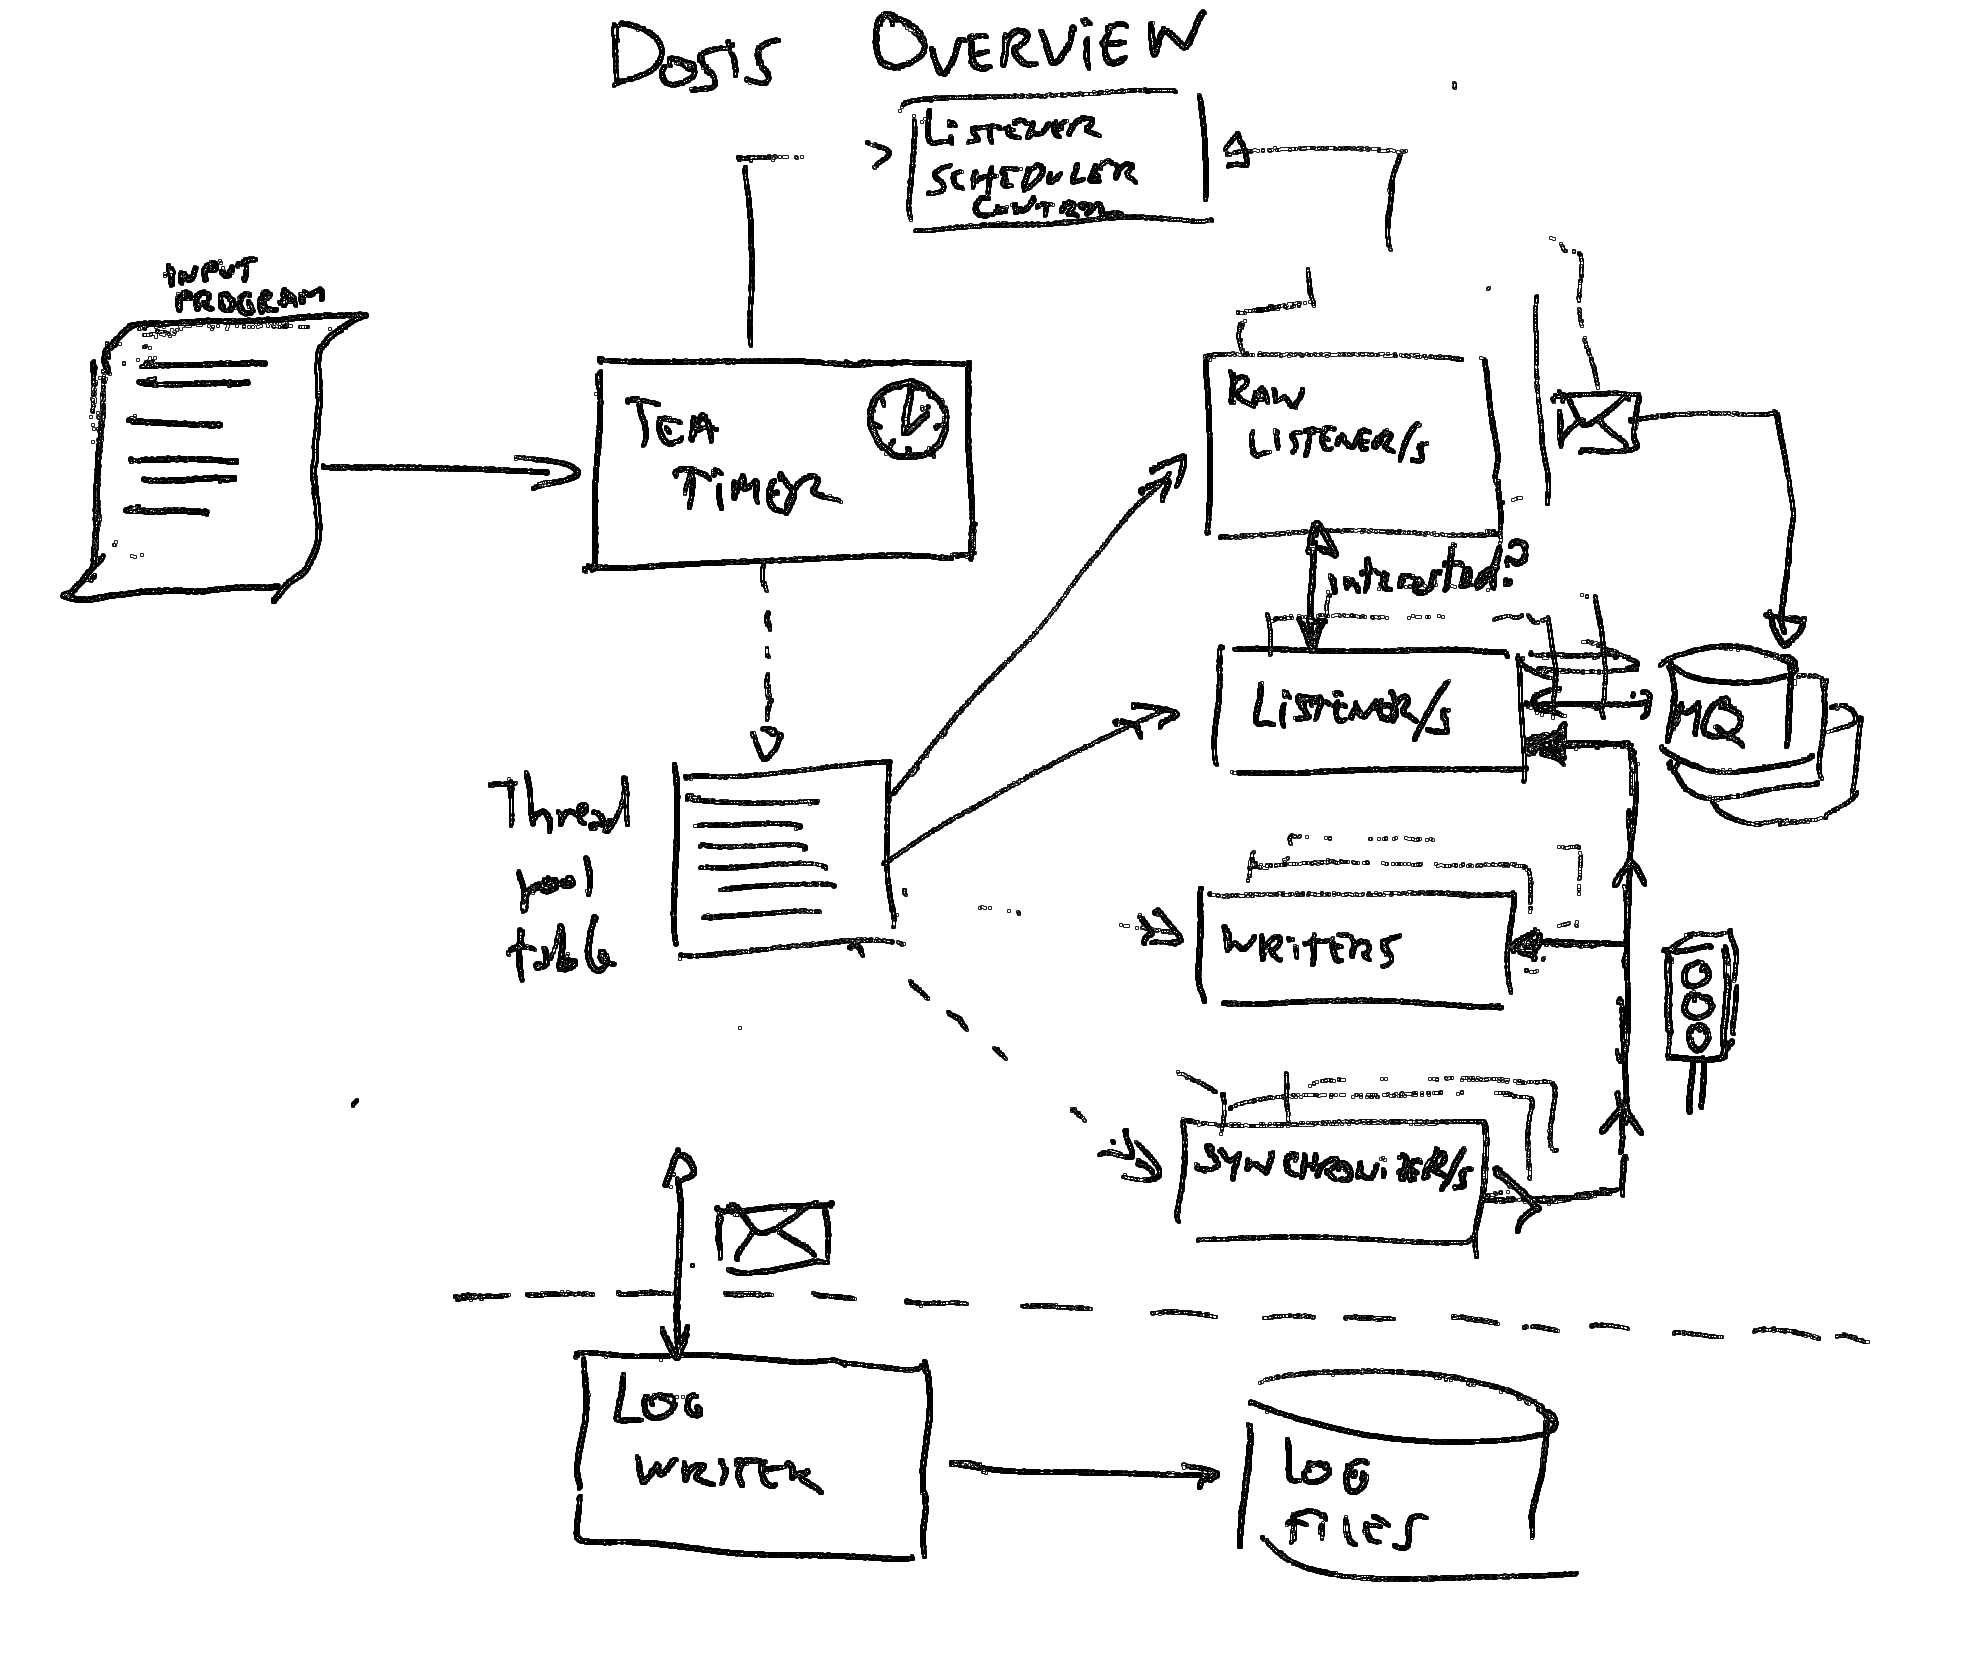 DOSIS OVERVIEW
LiSTENER
SCHEDULER
CONTROL
INPUT
PROGRAM
TEA
TiMER
RAW
LiSTENER/S
interested?
LiSTENER/S
MQ
Thread
pool
table
WRiTERS
SYNCHRONiZER/S
LOG
WRiTER
LOG
FiLES